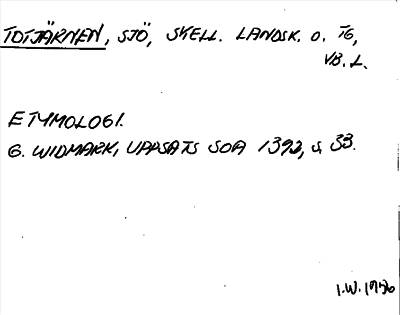 TOTJÄRNEN, SJÖ, SKELL. LANDSK. O. TG,
VB. L.
ETYMOLOGI.
G. WIDMARK, UPPSATS SOA 1392, S. 33.
I.W. 1956